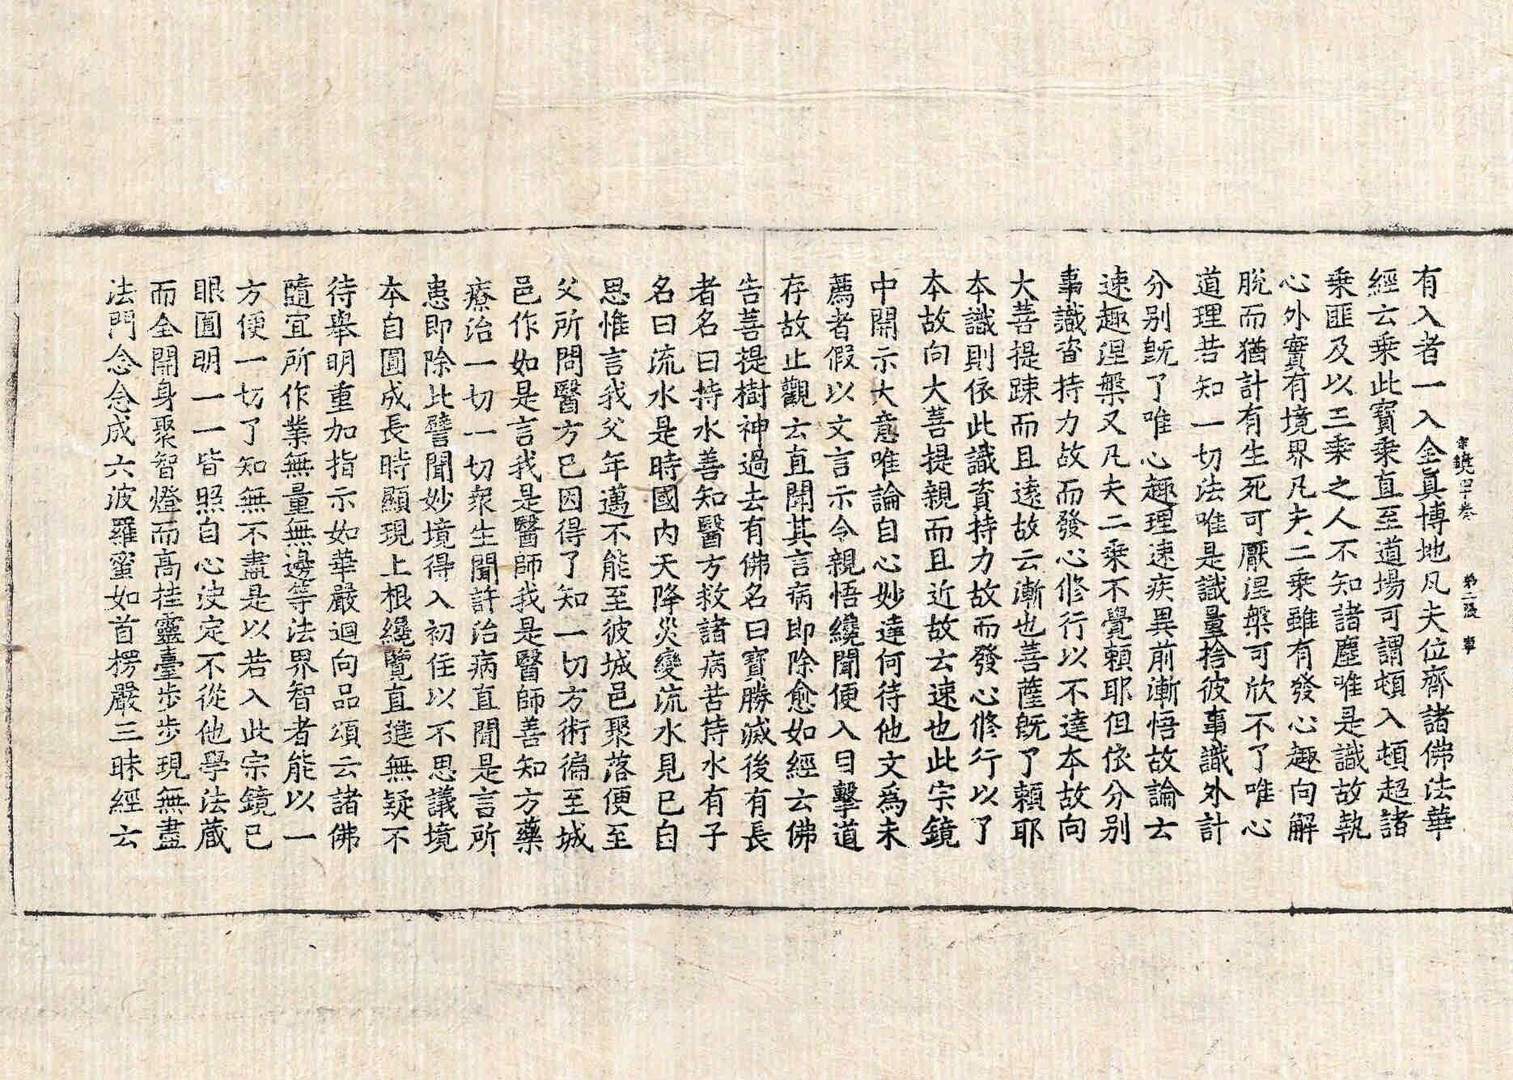 宗鏡四十卷　第二張　寧
有入者一入全眞博地凡夫位齊諸佛法華
經云乘此寶乘直至道場可謂頓入頓超諸
乘匪及以三乘之人不知諸塵唯是識故執
心外實有境界凡夫二乘雖有發心趣向解
脫而猶計有生死可厭涅槃可欣不了唯心
道理若知一切法唯是識量捨彼事識外計
分別旣了唯心趣理速疾異前漸悟故論云
速趣涅槃又凡夫二乘不覺賴耶但依分別
事識資持力故而發心修行以不達本故向
大菩提踈而且遠故云漸也菩薩旣了賴耶
本識則依此識資持力故而發心修行以了
本故向大菩提親而且近故云速也此宗鏡
中開示大意唯論自心妙達何待他文爲未
薦者假以文言示令親悟纔聞便入目擊道
存故止觀云直聞其言病即除愈如經云佛
告菩提樹神過去有佛名曰寶勝滅後有長
者名曰持水善知醫方救諸病苦持水有子
名曰流水是時國內天降災變流水見已自
思惟言我父年邁不能至彼城邑聚落便至
父所問醫方已因得了知一切方術徧至城
邑作如是言我是醫師我是醫師善知方藥
療治一切一切衆生聞許治病直聞是言所
患即除此譬聞妙境得入初住以不思議境
本自圓成長時顯現上根纔覽直進無疑不
待舉明重加指示如華嚴迴向品頌云諸佛
隨宜所作業無量無邊等法界智者能以一
方便一切了知無不盡是以若入此宗鏡已
眼圓明一一皆照自心決定不從他學法藏
而全開身聚智燈而高挂靈臺步步現無盡
法門念念成六波羅蜜如首楞嚴三昧經云